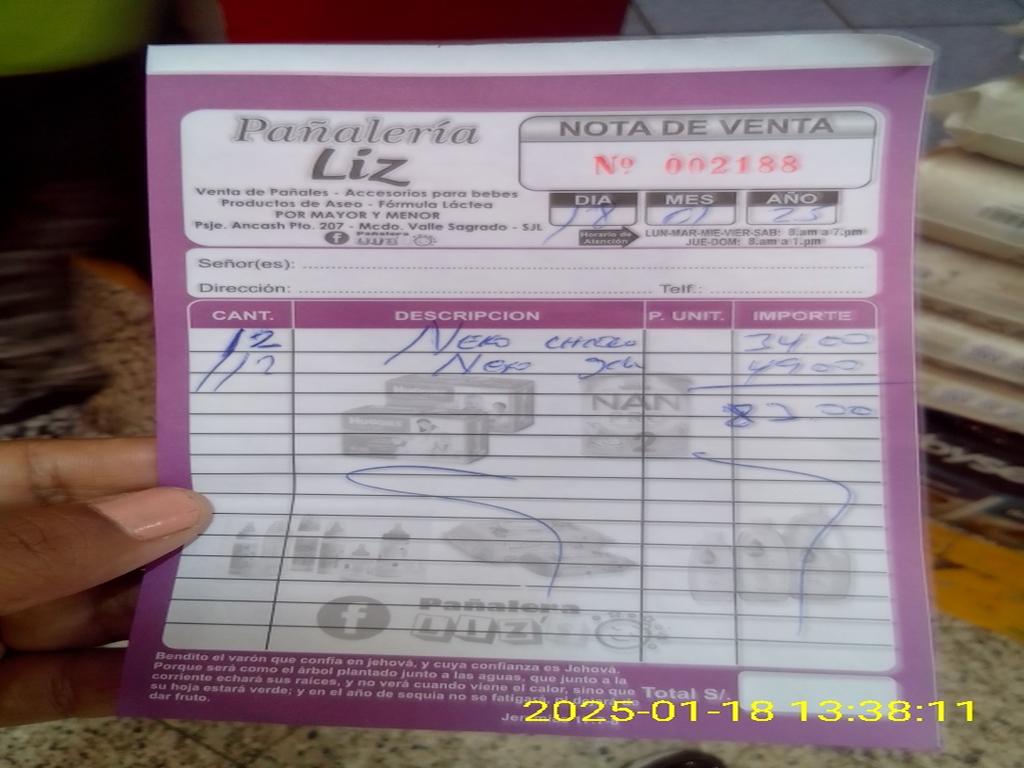 Pañalería
Liz
Venta de Pañales - Accesorios para bebes
Productos de Aseo - Fórmula Láctea
POR MAYOR Y MENOR
Psje. Ancash Pto. 207 - Mcdo. Valle Sagrado - SJL
Pañalera
LIZ
NOTA DE VENTA
Nº 002188
DIA MES AÑO
18 01 25
Horario de Atención LUN-MAR-MIE-VIER-SAB: 8.am a 7.pm
JUE-DOM: 8.am a 1.pm
Señor(es):
Dirección: Telf.:
CANT. DESCRIPCION P. UNIT. IMPORTE
1/2 34 00
1/2 49 00
HUGGIES
HUGGIES
NAN
2
83 00
Pañalera
LIZ
Bendito el varón que confía en jehová, y cuya confianza es Jehová.
Porque será como el árbol plantado junto a las aguas, que junto a la
corriente echará sus raíces, y no verá cuando viene el calor, sino que
su hoja estará verde; y en el año de sequia no se fatigará, ni
dar fruto.
Total S/.
2025-01-18 13:38:11